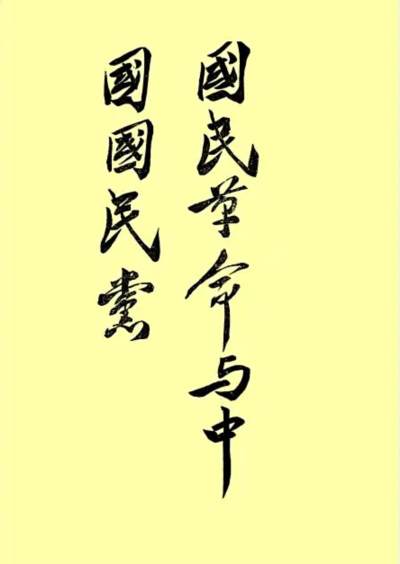 國民革命与中
國國民黨